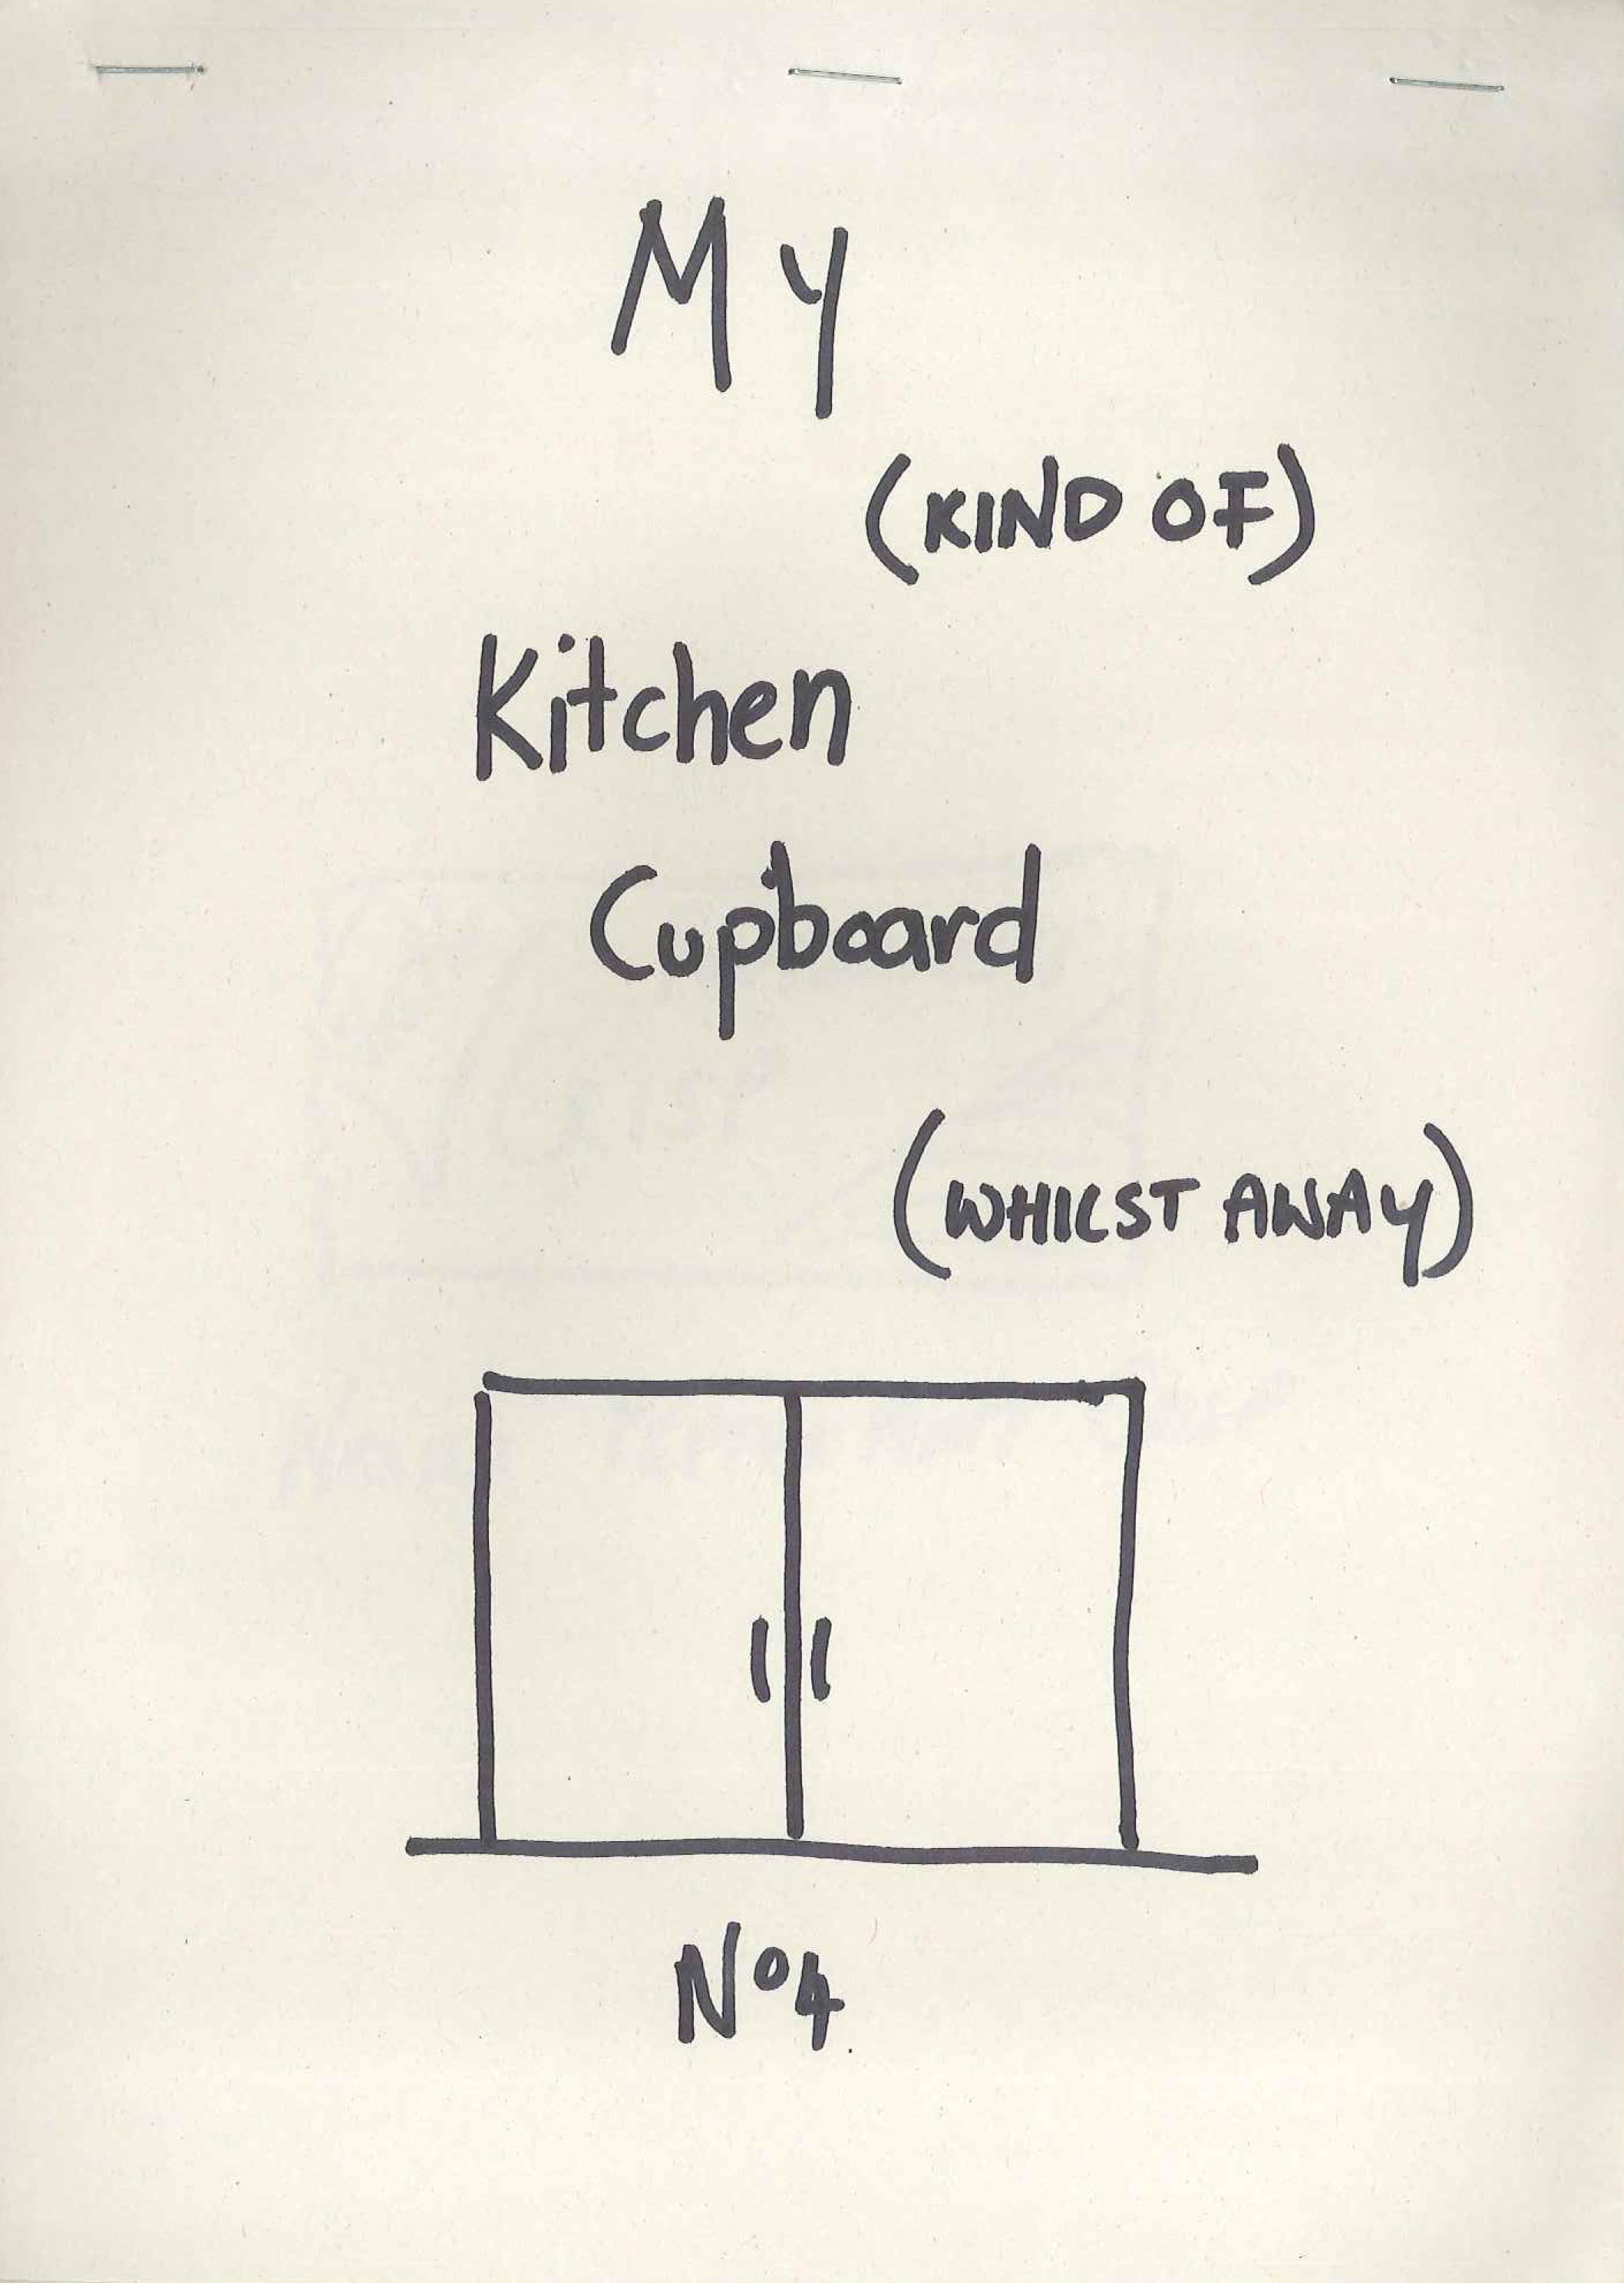 My
(KIND OF)
Kitchen
Cupboard
(WHILST AWAY)
Nº4